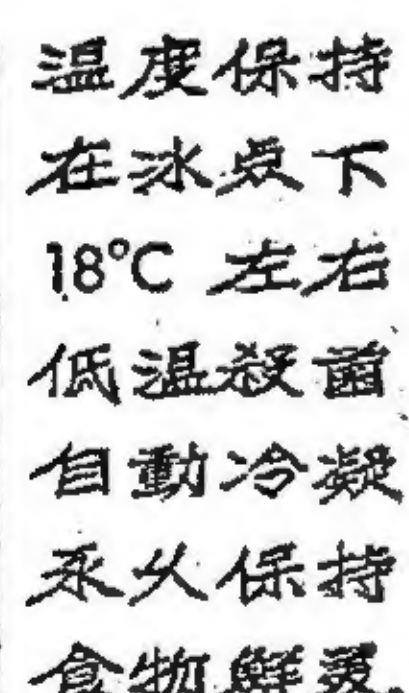 温度保持
在冰点下
18°C 左右
低温殺菌
自動冷凝
永久保持
食物鮮美